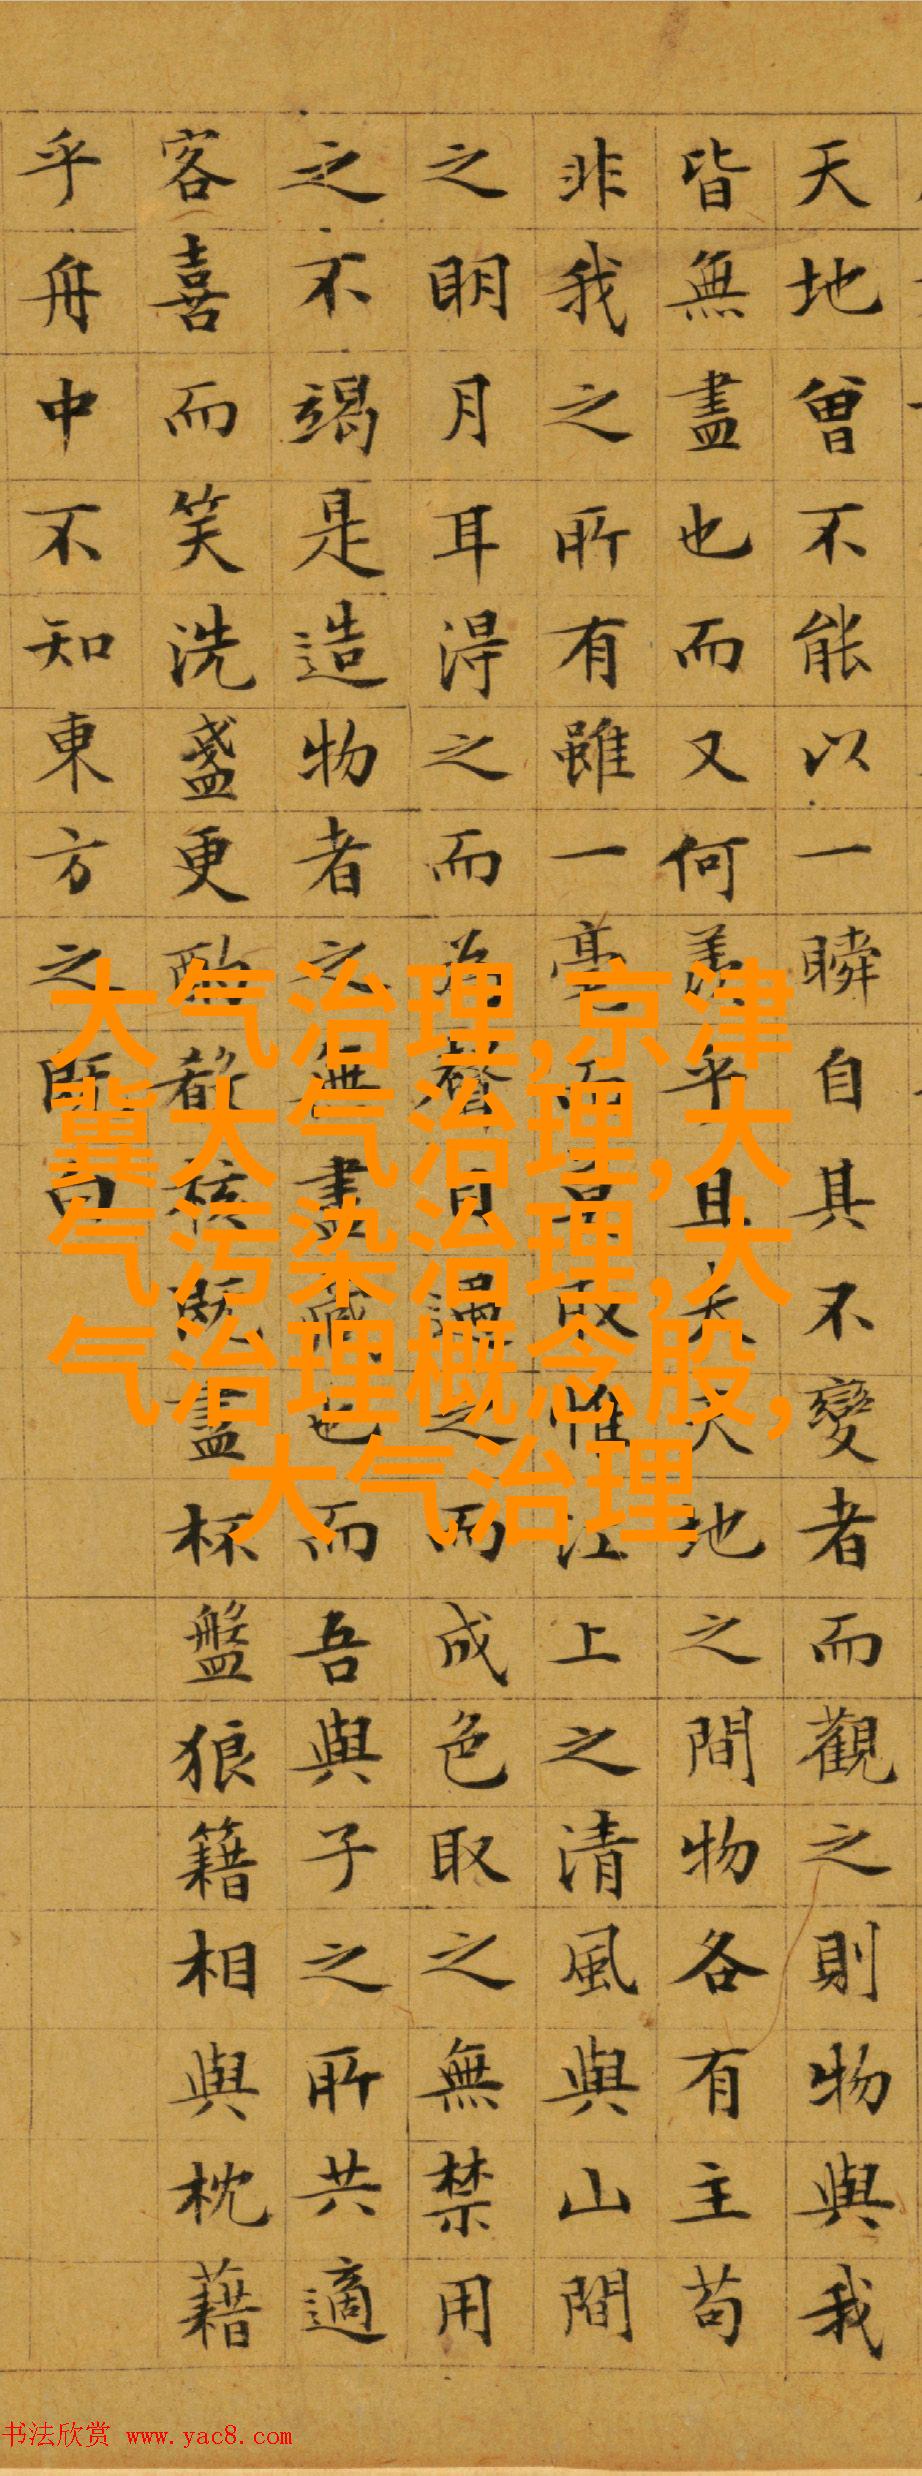 天地曾不能以一瞬自其不變者而觀之則物與我
皆無盡也而又何羨乎且夫天地之間物各有主苟
非我之所有雖一毫而莫取惟江上之清風與山間
之明月耳得之而為聲目遇之而成色取之無禁用
之不竭是造物者之無盡藏也而吾與子之所共適
客喜而笑洗盞更酌肴核既盡杯盤狼籍相與枕藉
乎舟中不知東方之既白
大气治理,京津
冀大气治理,大
气污染治理,大
气治理概念股,
大气治理
书法欣赏 www.yac8.com